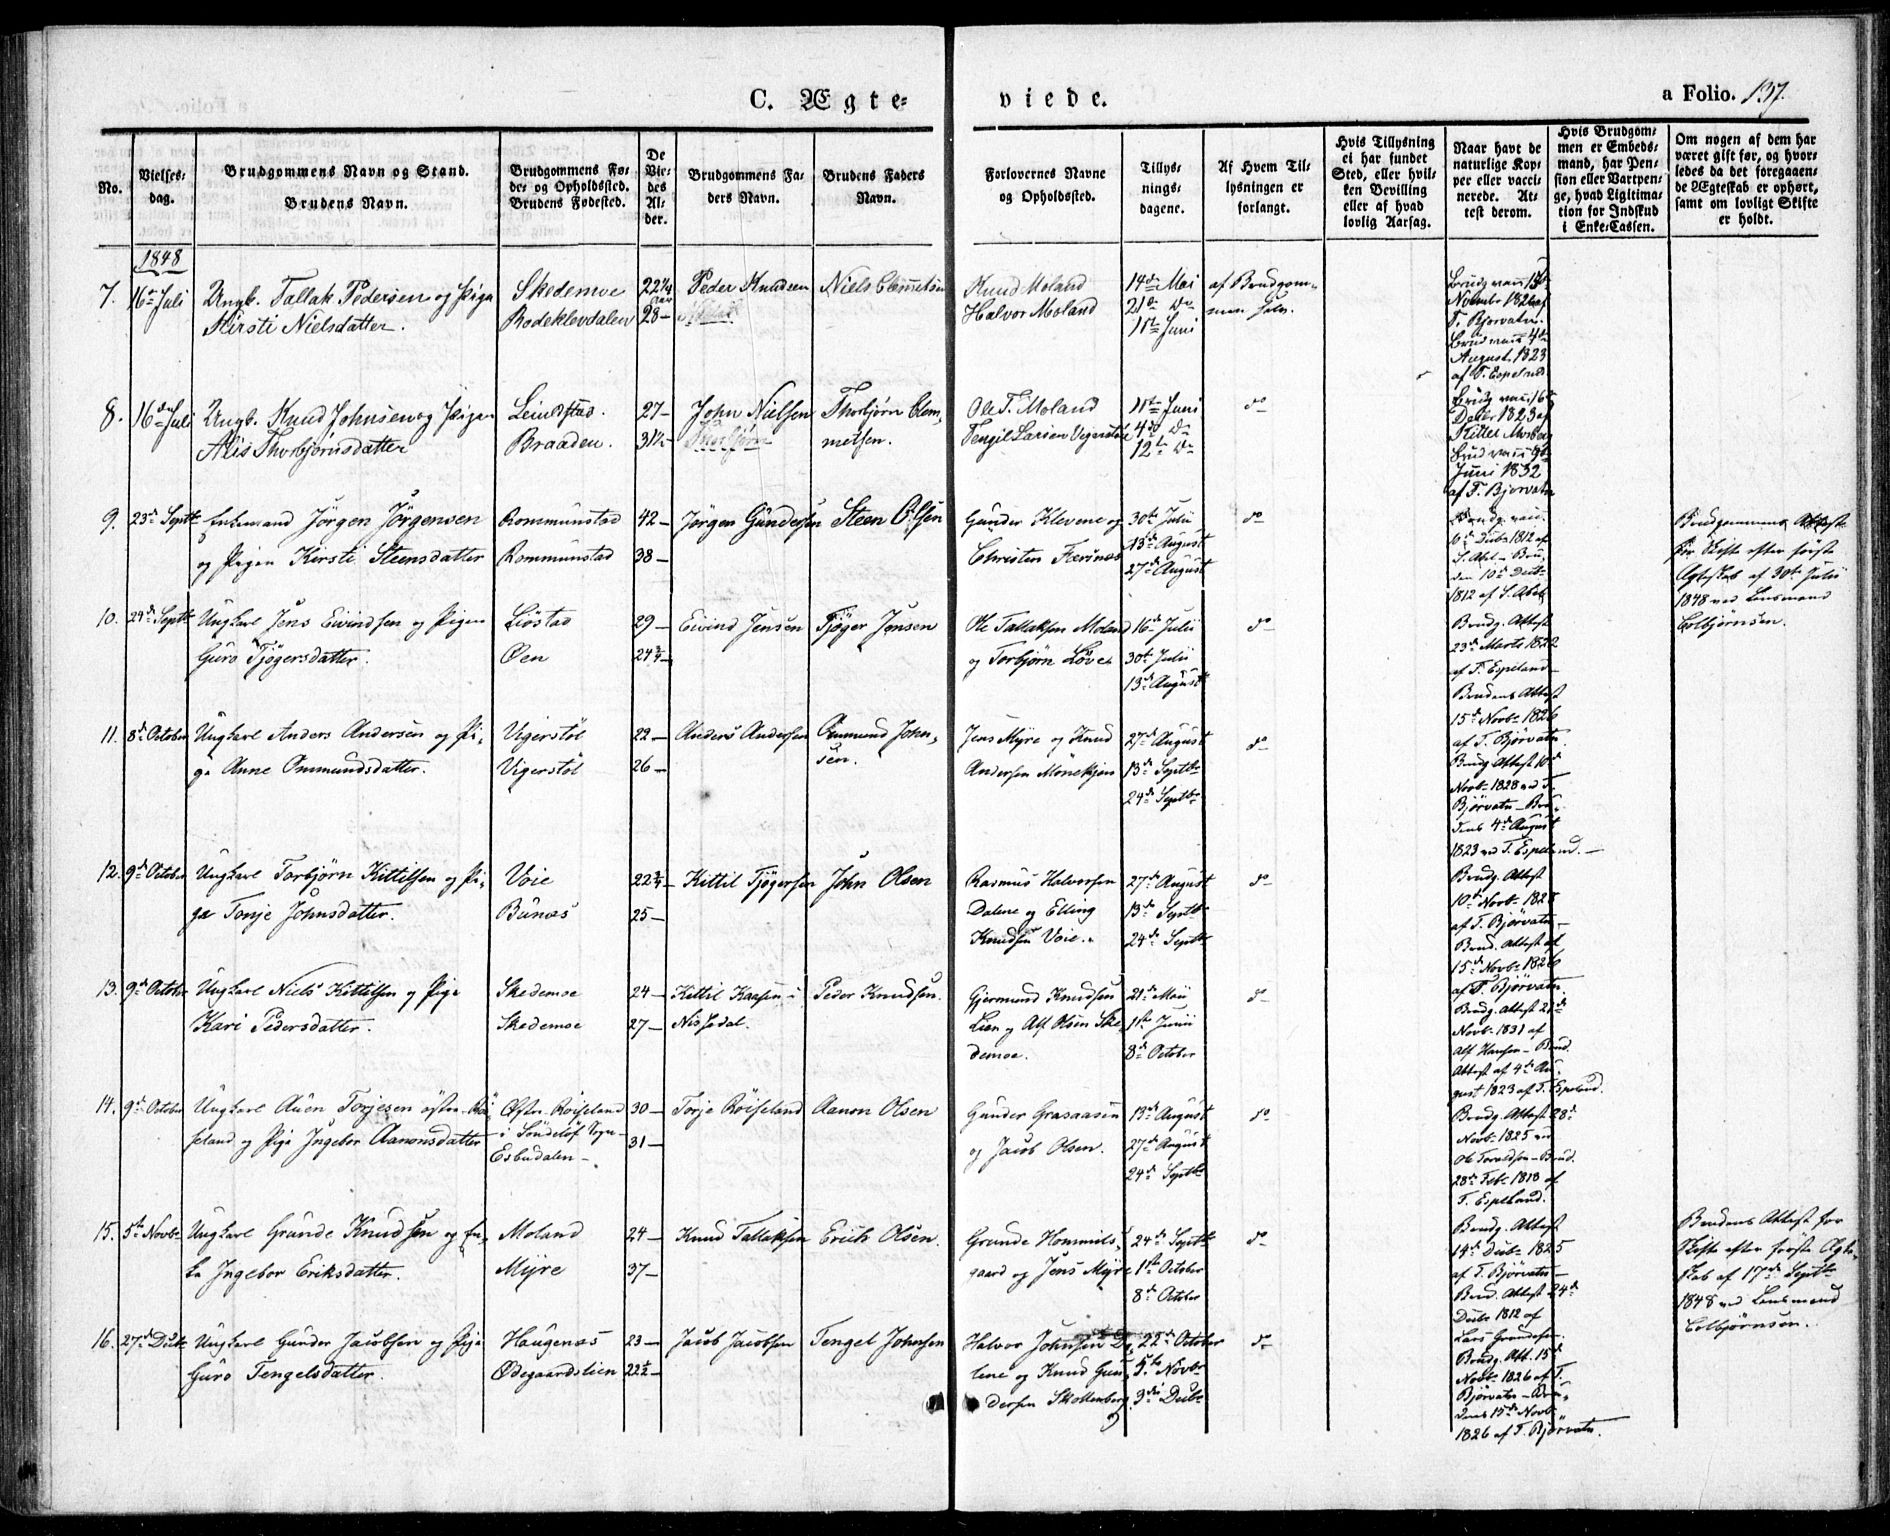 C. Ægte-
viede.
a Folio. 137.
No.
Vielses-
dag.
Brudgommens Navn og Stand.
Brudens Navn.
Brudgommens Fø-
de- og Opholdssted.
Brudens Fødested.
De
Vie-
des
Al-
der.
Brudgommens Fa-
ders Navn.
Brudens Faders
Navn.
Forlovernes Navne
og Opholdssted.
Tillys-
nings-
dagene.
Af Hvem Til-
lysningen er
forlangt.
Hvis Tillysning
ei har fundet
Sted, eller hvil-
ken Bevilling
eller af hvad
lovlig Aarsag.
Naar havt de
naturlige Kop-
per eller vacci-
nerede. At-
test derom.
Hvis Brudgom-
men er Embeds-
mand, har Pen-
sion eller Vartpen-
ge, hvad Ligitima-
tion for Indskud
i Enke-Cassen.
Om nogen af dem har
været gift før, og hvor-
ledes da det foregaaen-
de Ægteskab er ophørt,
samt om lovligt Skifte
er holdt.
1848
7. 16de Juli Ungk. Tallak Pedersen og Pige
Kirsti Nielsdatter.
Skedemoe
Rodeklevdalen
22 1/4 aar
28-
Peder Knudsen
Niels Clemetsen
Knud Moland
Halvor Moland
14de Mai
21de do
11te Juni
af Brudgom-
men selv.
Brudg. vacc. 15de
Novembr 1826 af
T. Bjorvatn.
Brud vacc. 4de
August 1823
af T. Espelund
8. 16de Juli Ungk. Knud Johnsen og Pigen
Alis Thorbjørnsdatter
Braaden.
27-
31 1/2-
John Nielsen
Thorbjørn Clem-
metsen.
Ole T. Moland
Tengil Larsen Vegerstøl
11te Juni
12te do
do
Brudg. vacc. 16
Decbr 1823 af
Kittel Mosberg
Brud vacc. 9de
Juni 1832
af T. Bjorvatn
9. 23de Septbr Enkemand Jörgen Jörgensen
og Pigen Kirsti Steensdatter
Rommunstad
Rommunstad
42-
38-
Jörgen Gundersen
Steen Olsen
Gunder Klevene og
Christen Fierines
30te Julii
13de August
27de August
do
Brudg. vacc.
10de Decbr 1812 af
S. Abel - Bru-
den 10de Decbr
1812 af S. Abel
Brudgommens Atteste
for Skifte efter første
Ægteskab af 30te Julii
1848 ved Lensmand
Colbjørnsen.
10. 29de Septbr Ungkarl Jens Eivindsen og Pigen
Guro Tjögersdatter.
Liöstad
Øen
29-
24 3/4-
Eivind Jensen
Tjöger Jensen
Ole Tallaksen Moland
og Torbjörn Löve
16de Julii
30te Julii
13de August
do
Brudg. Attest
23de Marts 1822
af T. Espeland
Brudens Attest
15de Novbr 1826
af T. Björvatn
11. 8de October Ungkarl Anders Andersen og Pi-
ge Anne Ommundsdatter.
Vigerstöl
Vigerstöl
22-
26-
Anders Andersen
Ommund John-
sen.
Jens Myre og Knud
Andersen Mönekjön
27de August
13de Septbr
24de Septbr
do
Brudg. Attest 10de
Novbr 1828 ved T.
Björvatn - Bru-
dens 4de August
1823 ved T. Espelund. -
12. 9de October Ungkarl Torbjörn Kittilsen og Pi-
ge Tonje Johnsdatter.
Voie
Bunæs
22 3/4-
25-
Kittil Tjögersen
John Olsen
Rasmus Halvorsen
Dalene og Elling
Knudsen Voie.
27de August
13de Septbr
24de Septbr
do
Brudg. Attest
10de Novbr 1828
af T. Björvatn -
Brud. Attest af
15de Novbr 1826
af T. Björvatn.
13. 9de October Ungkarl Niels Kittilsen og Pige
Kari Pedersdatter.
Skedemoe
Skedemoe
24-
27-
Kittil Kaasen i
Nissedal.
Peder Knudsen.
Gjermund Knudsen
Lien og Alf Olsen Ske-
demoe.
21de Mai
11te Junii
8de October
do
Brudg. Attest 21de
Novbr 1831 af
Alf Hansen - Brud.
Attest af 4de Au-
gust 1823 af T. Espelund.
14. 9de October Ungkarl Auen Torjesen östre Röi-
seland og Pige Ingebor Aanonsdatter
Østre Röiseland
i Söndeløf Sogn -
Esbudalen -
30-
31-
Torje Röiseland
Aanon Olsen
Gunder Grasaasen
og Jacob Olsen.
13de August
27de August
24de Septbr
do
Brudg. Attest 28de
Novbr 1825 ved
Ole Toroldsen - Brud.
28de Febr 1818 af
T. Espeland.
15. 5te Novbr Ungkarl Grunde Knudsen og En-
ke Ingebor Eriksdatter.
Moland
Myre
24-
37-
Knud Tallaksen
Erich Olsen.
Grunde Hommels-
gaard og Jens Myre
24de Septbr
1ste October
8de October
do
Brudg. Attest
14de Decbr 1825
af T. Björvatn -
Brud. Attest 24de
Decbr 1812 af
Lars Grundesen.
Brudens Attest for
Skifte efter første Ægte-
skab af 17de Septbr
1848 ved Lensmand
Colbjørnsen.
16. 27de Decbr Ungkarl Gunder Jacobsen og Pige
Guro Tengelsdatter.
Haugenæs
Ødegaardslien
23-
22 1/2-
Jacob Jacobsen
Tengel Johnsen
Halvor Johnsen Da-
lene og Knud Gun-
dersen Skollenberg
22de October
5te Novbr
3die Decbr
do
Brudg. Att. 15de
Novbr 1826 af T.
Björvatn - Bru-
dens 15de Novbr
1826 af T. Björvatn.